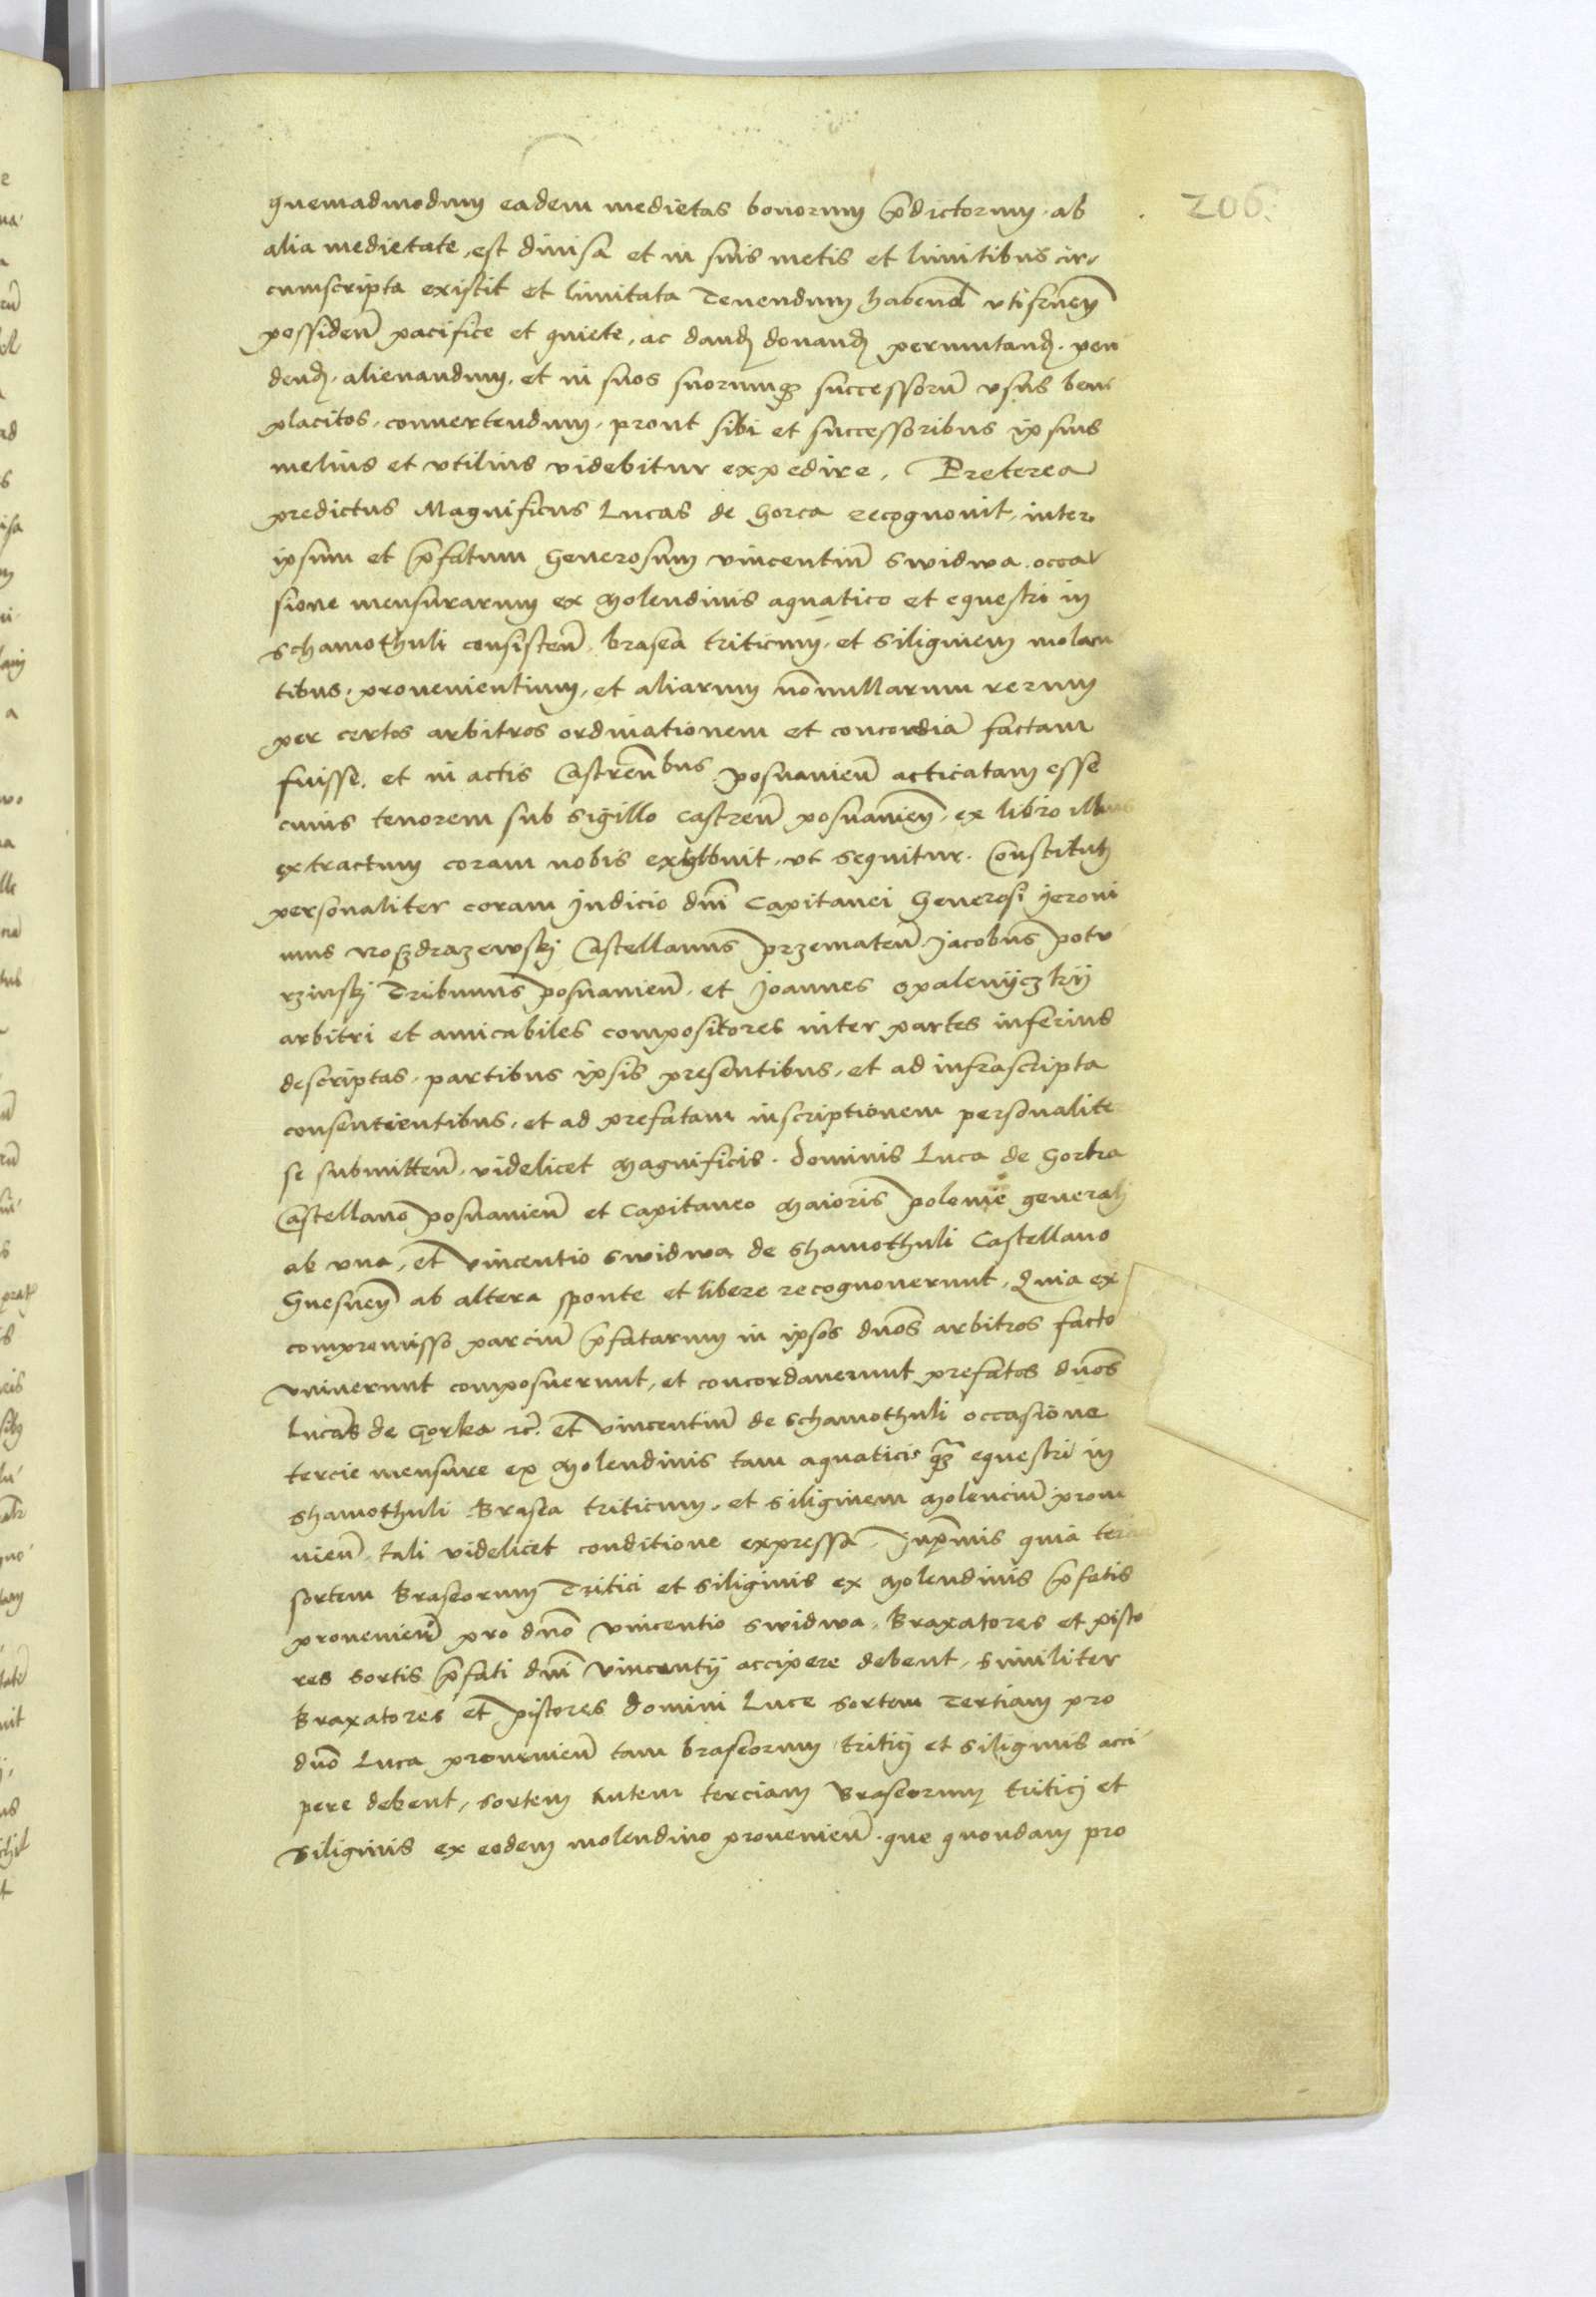 206.
quemadmodum eadem medietas bonorum p̄dictorum, ab
alia medietate, est diuisa et in suis metis et limitibus cir,
cumscripta existit et limitata Tenendum habend̄ vtifruen̄
possiden̄ pacifice et quiete, ac dand donand permutand. ven
dend. alienandum, et in suos suorumq successorū vsus bene
placitos, conuertendum, prout sibi et successoribus ipsius
melius et vtilius videbitur expedire, Preterea
predictus Magnificus Lucas de Gorca recognouit, inter
ipsum et p̄fatum Generosum vincentiū Swidwa, occa
sione mensurarum ex Molendinis aquatico et equestri in
Schamothuli consisten̄, brasea triticum, et siliginem molen
tibus, prouenientium, et aliarum nōnullarum rerum
per certos arbitros ordinationem et concordiā factam
fuisse, et in actis Castren̄bus posnanien̄ acticatam esse
cuius tenorem sub sigillo castren̄ posnanien̄, ex libro illius
extractum coram nobis exhibuit, vt sequitur. Constitutj
personaliter coram Judicio dn̄i Capitanei Generosi Jeroni
mus Rosdrazewskj Castellanus przematen̄ Jacobus potu
rzinskj Tribunus posnanien̄, et Joannes Opalenyczkij
arbitri et amicabiles compositores inter partes inferius
descriptas, partibus ipsis presentibus, et ad infrascripta
consentientibus, et ad prefatam inscriptionem personalite
se submitten̄, videlicet Magnificis. Dominis Luca de Gorka
Castellano posnanien̄ et Capitaneo Maioris polonie generalj
ab vna, et vincentio Swidwa de Shamothuli Castellano
Gnesnen̄ ab altera sponte et libere recognouerunt, Quia ex
compromisso parciū p̄fatarum in ipsos dn̄os arbitros facto
vniuerunt composuerunt, et concordauerunt prefatos dn̄os
Lucas de Gorka rc̄. et vincentiū de Schamothuli occasione
tercie mensure ex Molendinis tam aquaticis q̄ equestri in
Shamothuli Brasea triticum, et siliginem Molenciū proue
nien̄, tali videlicet conditione expressa, Inp̄mis quia
sortem Braseorum Tritici et siliginis ex Molendinis p̄fatis
prouenien̄ pro dn̄o vincentio Swidwa, Braxatores et pisto
res sortis p̄fati dn̄i vincentij accipere debent, similiter
Braxatores et pistores Domini Luce sortem Tertiam pro
dn̄o Luca prouenien̄ tam braseorum tritici et siliginis acci
pere debent, sortem Autem terciam Braseorum triticj et
siliginis ex eodem molendino prouenien̄, que quondam pro